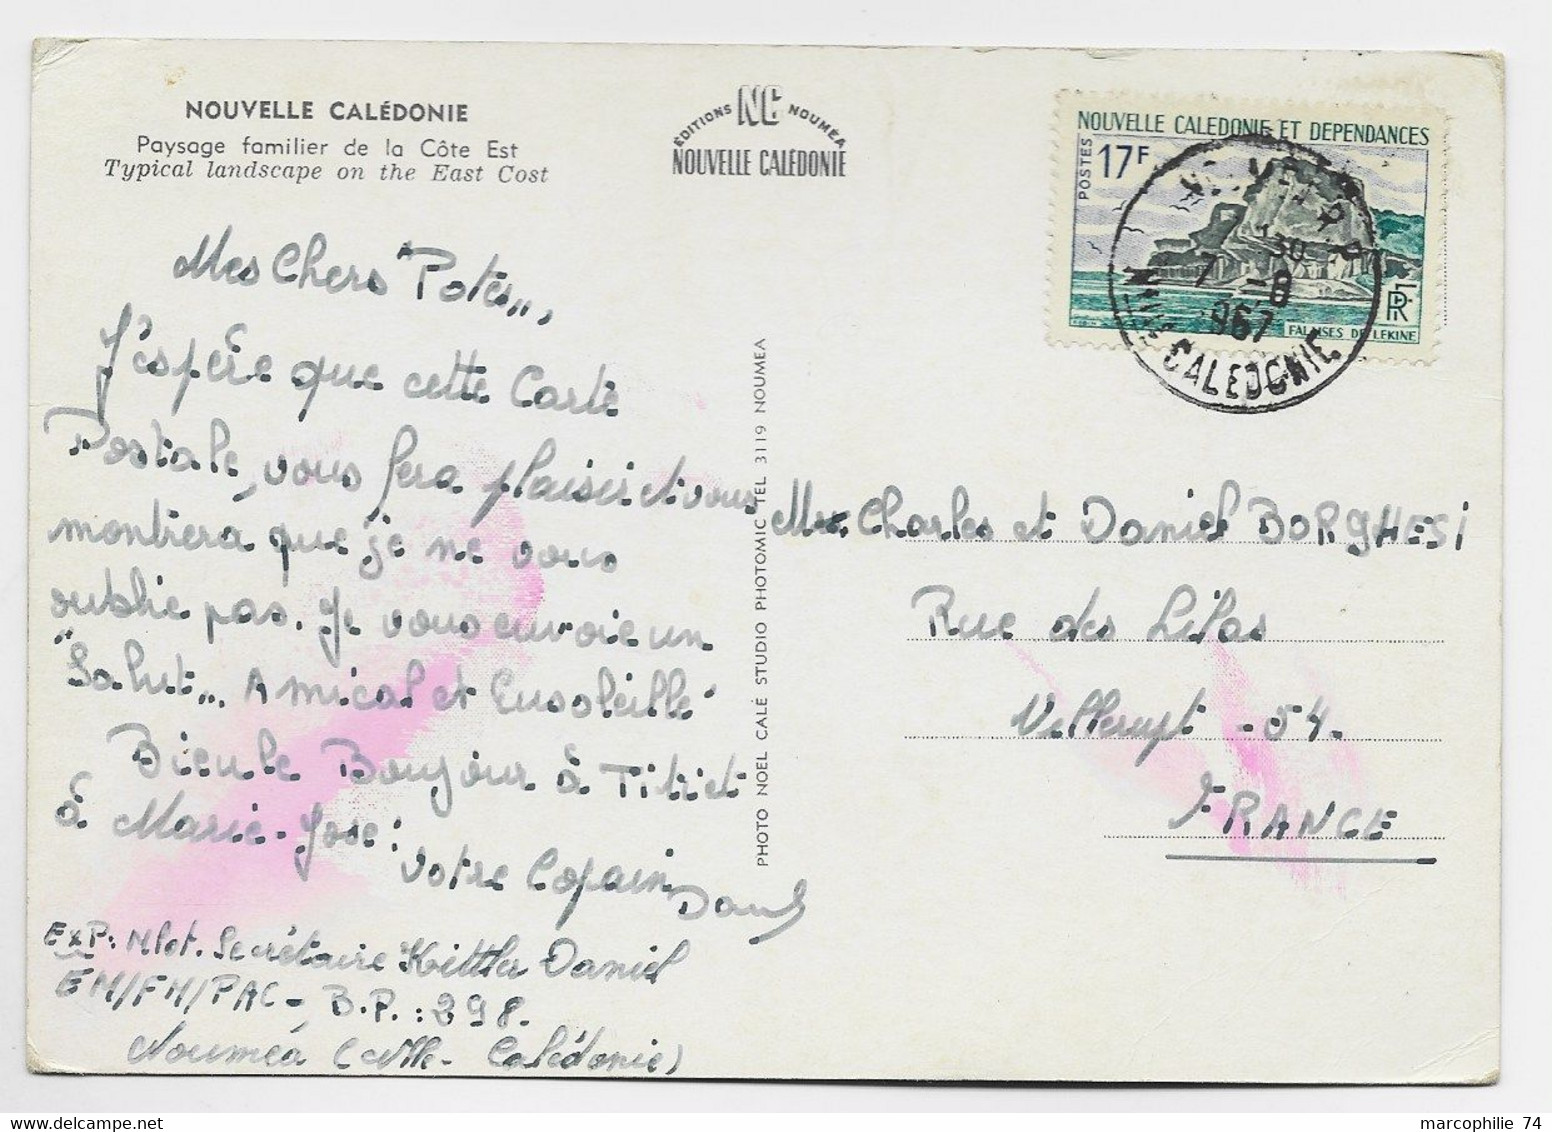 NOUVELLE CALÉDONIE
Paysage familier de la Côte Est
Typical landscape on the East Cost
ÉDITIONS NC NOUMÉA
NOUVELLE CALÉDONIE
NOUVELLE CALEDONIE ET DEPENDANCES
POSTES 17F
FALAISES DE LEKINE
RF
7 -8
1967
CALEDONIE
Mes Chers "Potes",,
J'espère que cette Carte
Postale, vous fera plaisir et vous
montrera que je ne vous
oublie pas. Je vous envoie un
"Salut,, Amical et Ensoleillé
Bien le Bonjour à Titi et
à Marie-José!
votre Copain
Daniel
EXP: Mlot. Secrétaire Kittler Daniel
EM/FM/PAC - B.P.: 298.
Nouméa (Nlle- Calédonie)
PHOTO NOEL CALÉ STUDIO PHOTOMIC TEL 3119 NOUMEA
Mrs Charles et Daniel BORGHESI
Rue des Lilas
Villerupt -54-
FRANCE
marcophilie 74